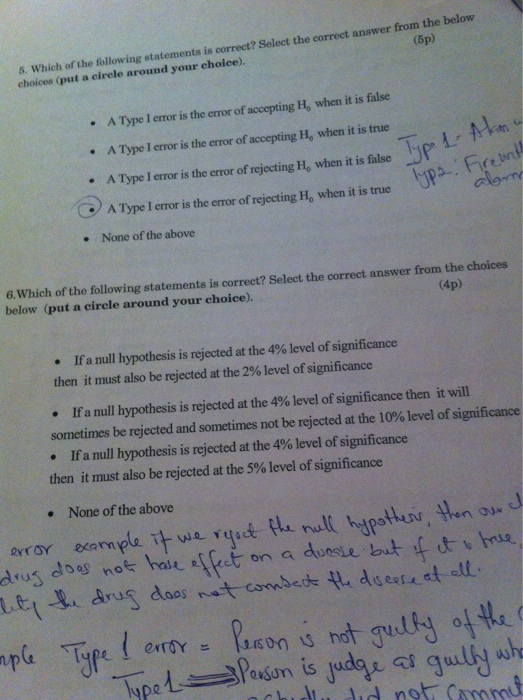 5. Which of the following statements is correct? Select the correct answer from the below
choices (put a circle around your choice).
(5p)
• A Type I error is the error of accepting H₀ when it is false
• A Type I error is the error of accepting H₀ when it is true
• A Type I error is the error of rejecting H₀ when it is false
• A Type I error is the error of rejecting H₀ when it is true
• None of the above
Type 1 -
Type 2:
6.Which of the following statements is correct? Select the correct answer from the choices
below (put a circle around your choice).
(4p)
• If a null hypothesis is rejected at the 4% level of significance
then it must also be rejected at the 2% level of significance
• If a null hypothesis is rejected at the 4% level of significance then it will
sometimes be rejected and sometimes not be rejected at the 10% level of significance
• If a null hypothesis is rejected at the 4% level of significance
then it must also be rejected at the 5% level of significance
• None of the above
error example if we reject the null hypothesis, then our
drug does not have effect on a but if it is true,
the drug does not at all.
Type 1 error = Person is not guilty of the
Type 1 Person is judge as guilty
not